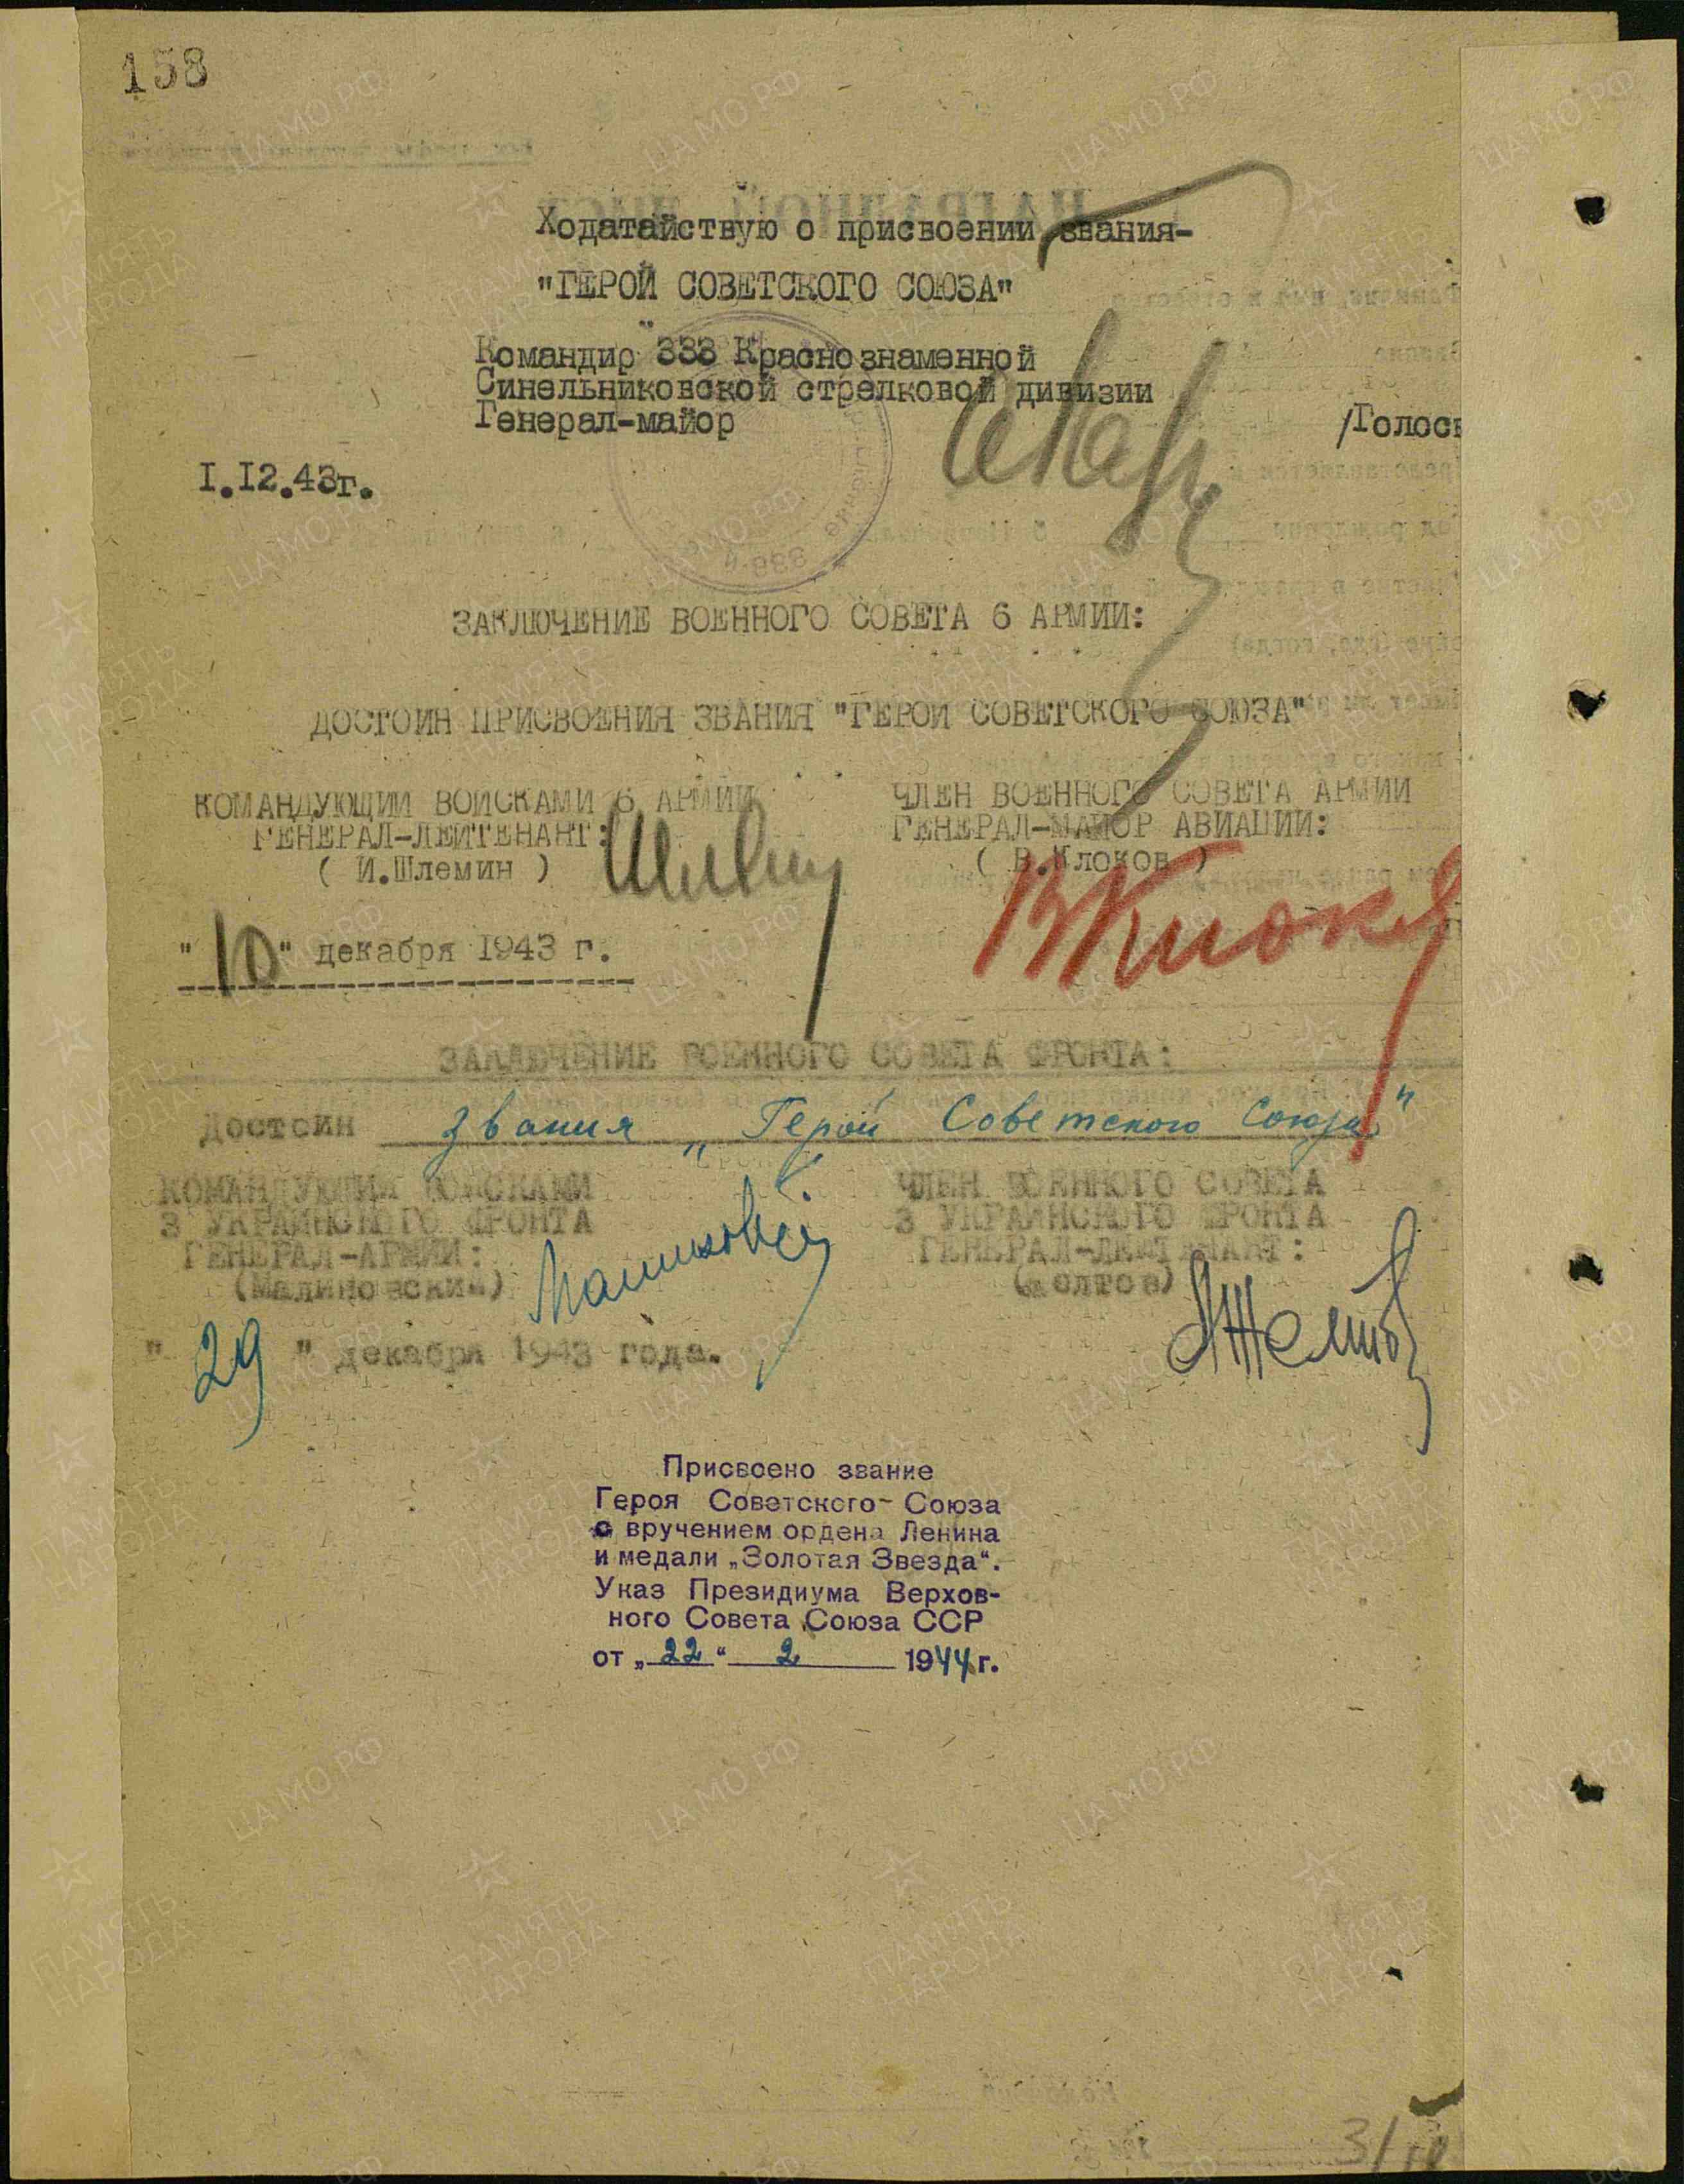 158
Ходатайствую о присвоении звания-
"ГЕРОЙ СОВЕТСКОГО СОЮЗА"
Командир 333 Краснознаменной
Синельниковской стрелковой дивизии
Генерал-майор /Голосв
I.I2.43г.
ЗАКЛЮЧЕНИЕ ВОЕННОГО СОВЕТА 6 АРМИИ:
ДОСТОИН ПРИСВОЕНИЯ ЗВАНИЯ "ГЕРОЙ СОВЕТСКОГО СОЮЗА"
КОМАНДУЮЩИЙ ВОЙСКАМИ 6 АРМИИ
ГЕНЕРАЛ-ЛЕЙТЕНАНТ:
( И.Шлемин )
ЧЛЕН ВОЕННОГО СОВЕТА АРМИИ
ГЕНЕРАЛ-МАЙОР АВИАЦИИ:
( В.Клоков )
"10" декабря 1943 г.
ЗАКЛЮЧЕНИЕ ВОЕННОГО СОВЕТА ФРОНТА:
Достоин звания „Герой Советского Союза"
КОМАНДУЮЩИЙ ВОЙСКАМИ
3 УКРАИНСКОГО ФРОНТА
ГЕНЕРАЛ-АРМИИ:
(Малиновский)
ЧЛЕН ВОЕННОГО СОВЕТА
3 УКРАИНСКОГО ФРОНТА
ГЕНЕРАЛ-ЛЕЙТЕНАНТ:
(Желтов)
"29" декабря 1943 года.
Присвоено звание
Героя Советского Союза
с вручением ордена Ленина
и медали „Золотая Звезда".
Указ Президиума Верхов-
ного Совета Союза ССР
от „22" 2 1944г.